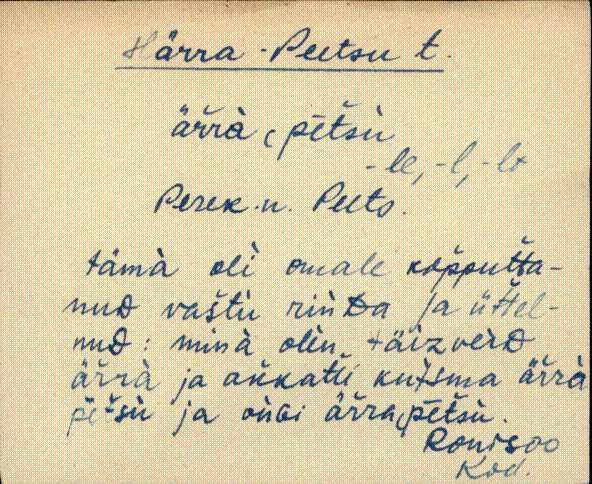 Härra-Peetsu t.
är̆rà, pētšù
-le, -l, -lt
Perek.n. Peets.
tämà oli omale kopputta-
nuD vaštù rinDa ja üttel-
nuD: minà olèn täizverD
är̆rà ja akkatti kutsma är̆rà
pētšù ja oligi är̆ra, pētšù.
Ronisoo
Kod.